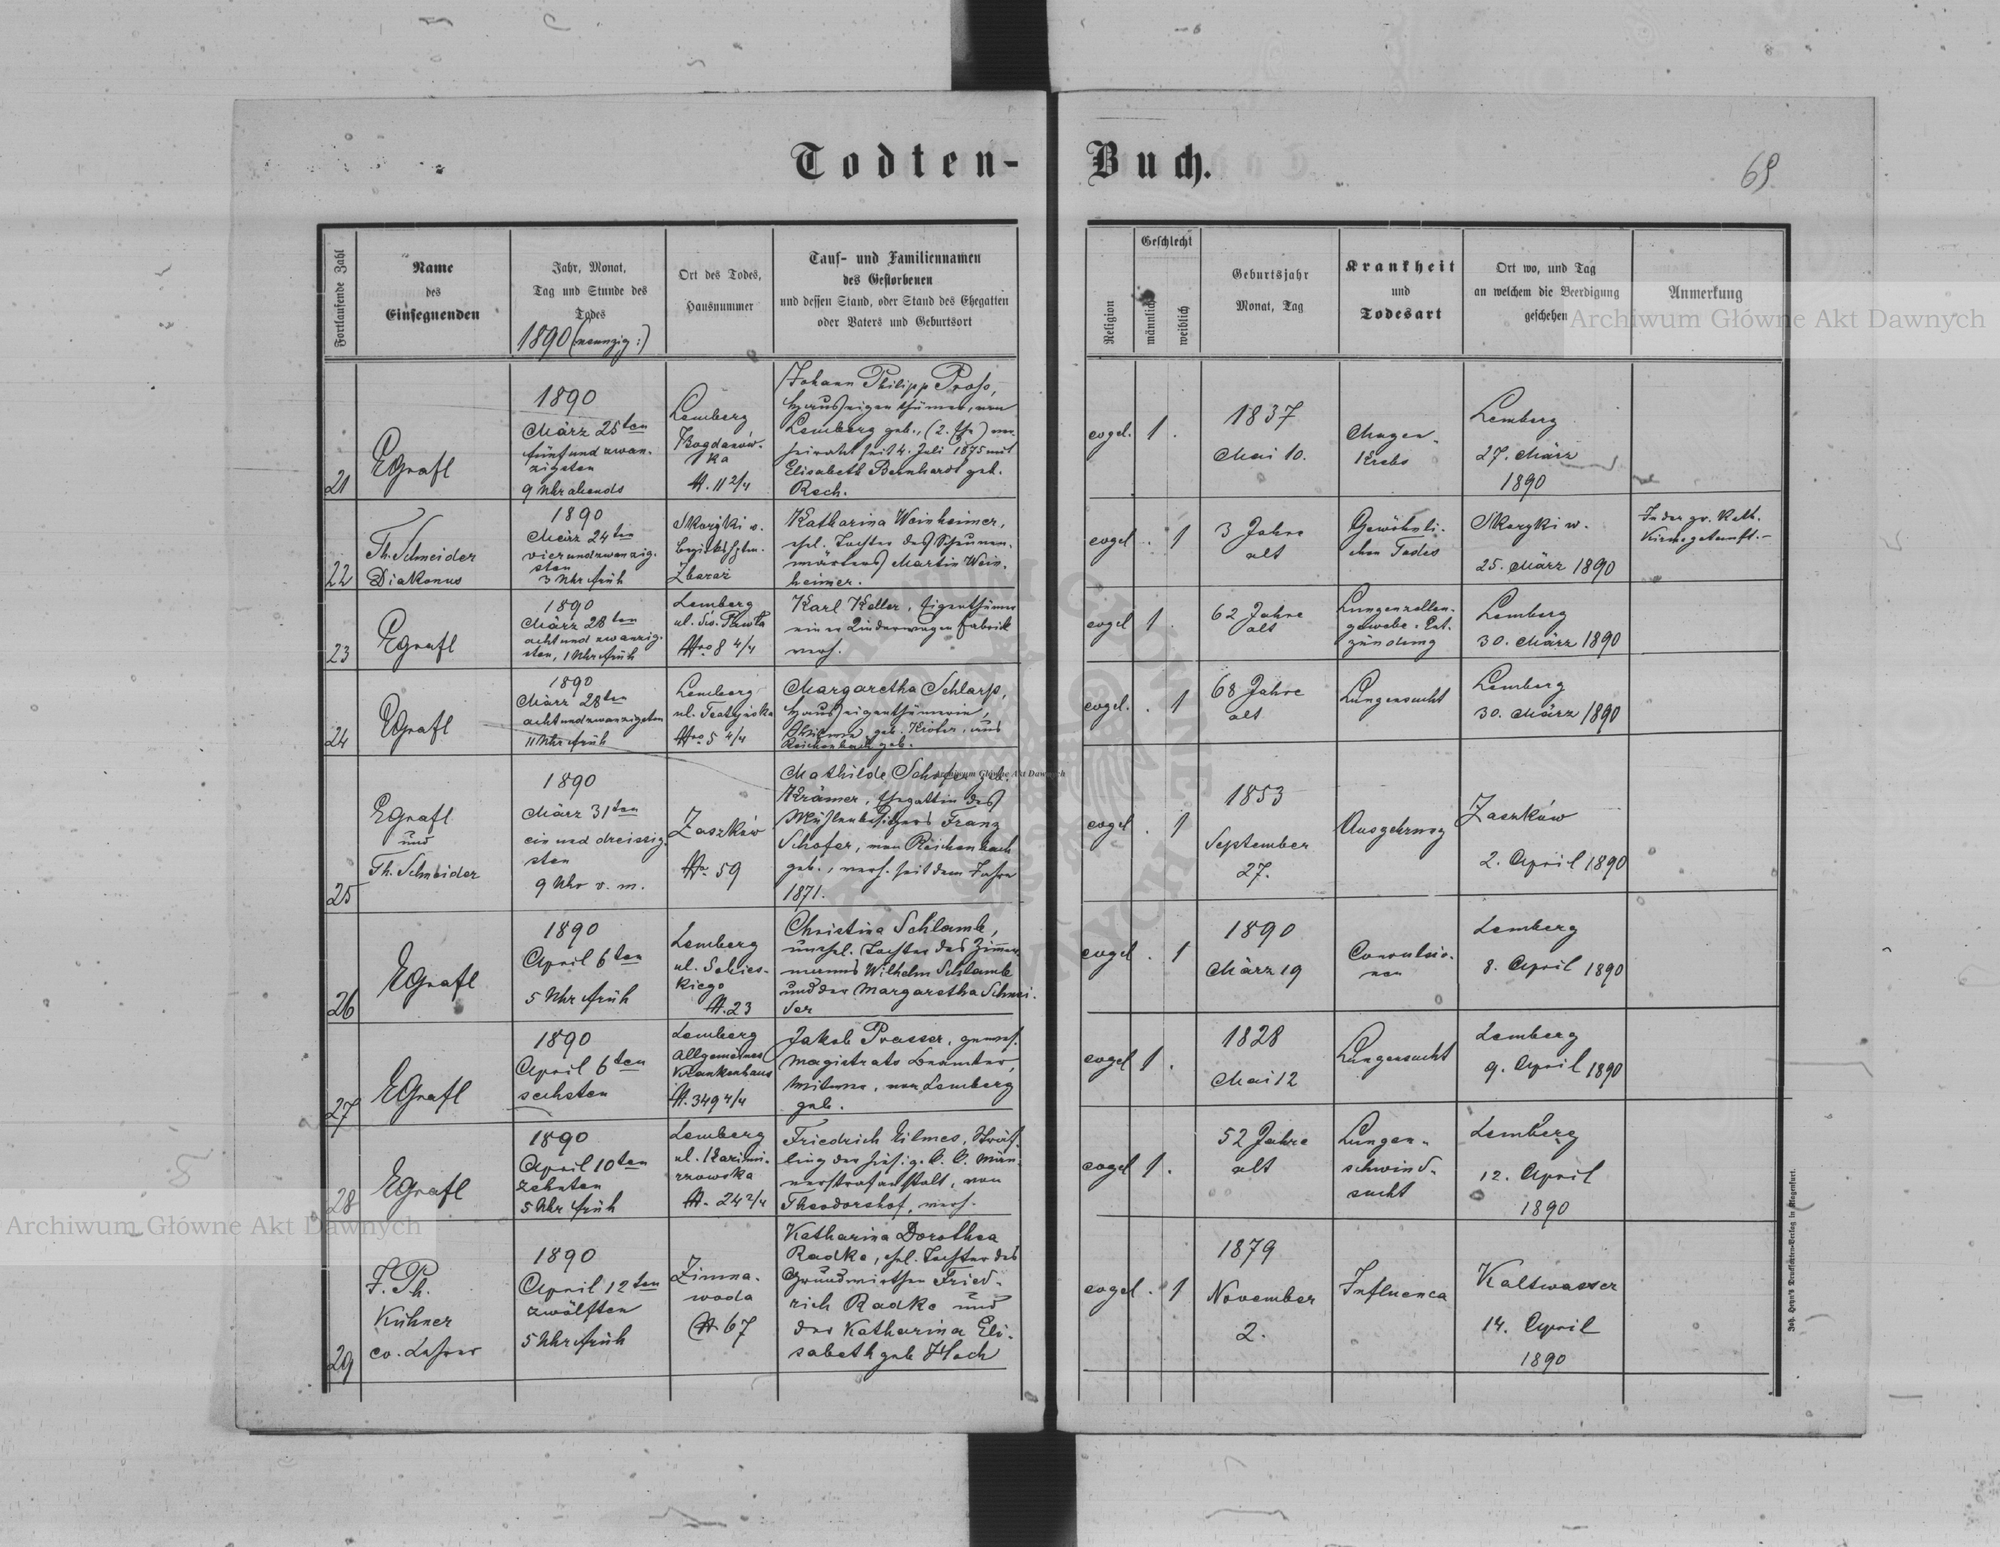 Todten-Buch.
69
Fortlaufende Zahl
Name
des
Einsegnenden
Jahr, Monat,
Tag und Stunde des
Todes
1890 (neunzig:)
Ort des Todes,
Hausnummer
Tauf- und Familiennamen
des Gestorbenen
und dessen Stand, oder Stand des Ehegatten
oder Vaters und Geburtsort
Religion
Geschlecht
männlich
weiblich
Geburtsjahr
Monat, Tag
Krankheit
und
Todesart
Ort wo, und Tag
an welchem die Beerdigung
geschehen
Anmerkung
Archiwum Główne Akt Dawnych
21
EGrafl
1890
März 25ten
fünfundzwan-
zigsten
9 Uhr abends
Lemberg
Bogdanów-
ka
N. 11 2/4
Johann Philipp
Hauseigenthümer, von
Lemberg geb., (2. Ehe) ver-
heirathet seit 4. Juli 1875 mit
Elisabeth Bernhardt geb.
Rech.
evgel.
1
.
1837
Mai 10.
Magen-
krebs
Lemberg
27. März
1890
22
Th. Schneider
Diakonus
1890
März 24ten
vierundzwanzig-
sten
3 Uhr früh
Zbaraż
Katharina Weinheimer,
ehel. Tochter des Scheunen-
wärters Martin Wein-
heimer.
evgel
.
1
3 Jahre
alt
Gewöhnli-
chen Todes
25. März 1890
In der gr. Kath.
Kirche getauft.-
23
EGrafl
1890
März 28ten
achtundzwanzig-
sten, 1 Uhr früh
Lemberg
ul. Św. Pawła
Nro 8 4/4
Karl Keller, Eigenthümer
einer Kinderwagen Fabrik
verh.
evgel
1
.
62 Jahre
alt
Lungenzellen-
gewebe-Ent-
zündung
Lemberg
30. März 1890
24
EGrafl
1890
März 28ten
achtundzwanzigsten
11 Uhr früh
Lemberg
ul.
Nro 5 4/4
Margaretha Schlarp,
Hauseigenthümerin,
Witwe, geb. aus
Reichenbach geb.
evgel.
.
1
68 Jahre
alt
Lungensucht
Lemberg
30. März 1890
25
EGrafl
und
Th. Schneider
1890
März 31ten
ein und dreissig-
sten
9 Uhr v. m.
Zaszków
No. 59
Mathilde Schofer, geb.
Krämer, Ehegattin des
Mühlenbesitzers Franz
Schofer, von Reichenbach
geb., verh. seit dem Jahre
1871.
Archiwum Główne Akt Dawnych
evgel
.
1
1853
September
27.
Auszehrung
Zaszków
2. April 1890
26
EGrafl
1890
April 6ten
5 Uhr früh
Lemberg
ul. Sobies-
kiego
N. 23
Christina Schlamb,
unehel. Tochter des Zimmer-
manns Wilhelm Schlamb
und der Margaretha Schnei-
der
evgel
.
1
1890
März 19
Convulsio-
nen
Lemberg
8. April 1890
27
EGrafl
1890
April 6ten
sechsten
Lemberg
Allgemeines
Krankenhaus
N. 349 4/4
Jakob Prasser, gewes.
Magistrats Beamter,
Witwer, von Lemberg
geb.
evgel
1
.
1828
Mai 12
Lungensucht
Lemberg
9. April 1890
28
EGrafl
1890
April 10ten
zehnten
5 Uhr früh
Lemberg
ul. Kazimi-
rzowska
N. 24 2/4
Friedrich Hilmes, Sträf-
ling der hies. g. k. k. Män-
nerstrafanstalt, von
Theodorshof, verh.
evgel
1
.
52 Jahre
alt
Lungen-
schwind-
sucht
Lemberg
12. April
1890
Archiwum Główne Akt Dawnych
29
F. Ph.
Kühner
ev. Lehrer
1890
April 12ten
zwölften
5 Uhr früh
Zimna-
woda
N 67
Katharina Dorothea
Radke, ehel. Tochter des
Grundwirthen Fried-
rich Radke und
der Katharina Eli-
sabeth geb. Hoch
evgel
.
1
1879
November
2.
Influenca
Kaltwasser
14. April
1890